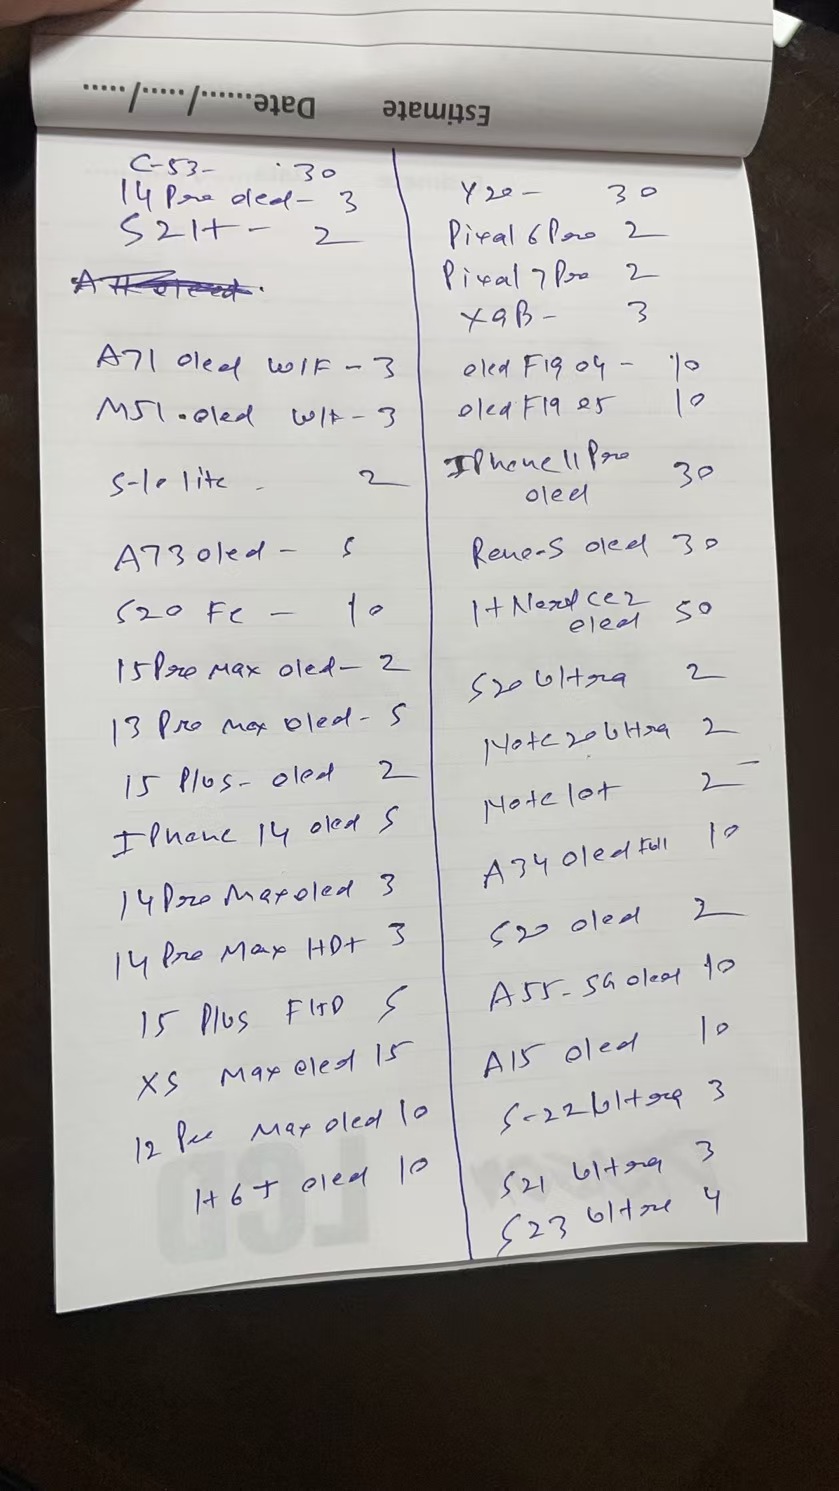 Estimate Date....../...../.....
C-53- 30
14 Pro oled- 3
S21+ - 2
A71 oled W/F - 3
M51 oled W/F - 3
S-10 lite - 2
A73 oled - 5
S20 FE - 10
15 Pro Max oled- 2
13 Pro Max oled- 5
15 Plus- oled 2
IPhone 14 oled 5
14 Pro Max oled 3
14 Pro Max HD+ 3
15 Plus FHD 5
XS Max oled 15
12 Pro Max oled 10
1+6T oled 10
Y20 - 30
Pixal 6 Pro 2
Pixal 7 Pro 2
X9B - 3
oled F19 04 - 10
oled F19 25 10
IPhone 11 Pro
oled 30
Reno-5 oled 30
1+Nord CE2
oled 50
S20 Ultra 2
Note 20 Ultra 2
Note 10+ 2
A34 oled Full 10
S20 oled 2
A55-5G oled 10
A15 oled 10
S-22 Ultra 3
S21 Ultra 3
S23 Ultra 4
LCD